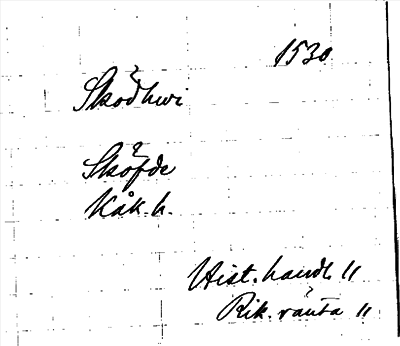 1530
Skodhwi
Sköfde
Kåk. h.
Hist. handl. 11
Rik. ränta 11